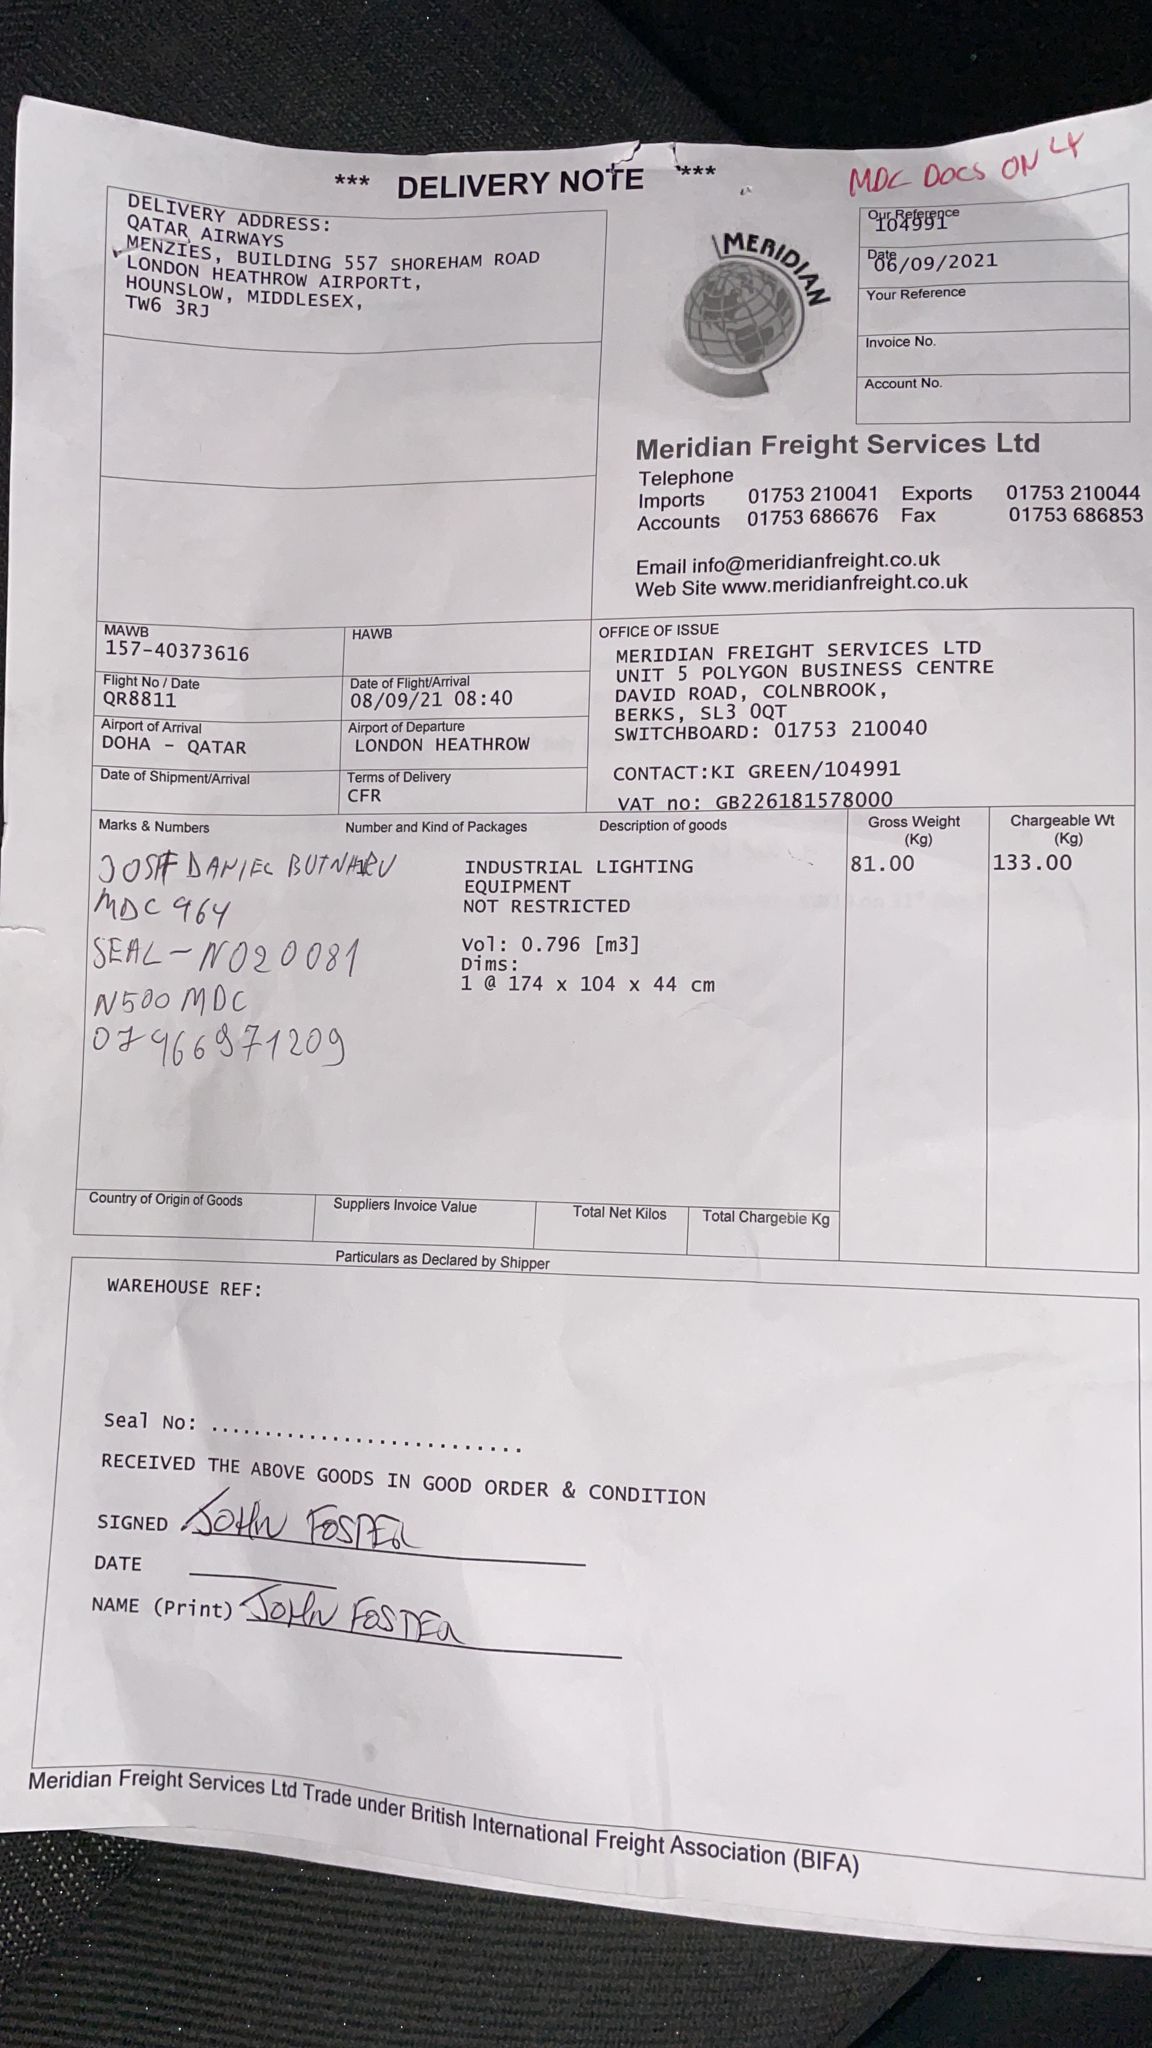 *** DELIVERY NOTE ***
MDC DOCS ONLY
DELIVERY ADDRESS:
QATAR AIRWAYS
MENZIES, BUILDING 557 SHOREHAM ROAD
LONDON HEATHROW AIRPORTt,
HOUNSLOW, MIDDLESEX,
TW6 3RJ
MERIDIAN
Our Reference
104991
Date
06/09/2021
Your Reference
Invoice No.
Account No.
Meridian Freight Services Ltd
Telephone
Imports 01753 210041 Exports 01753 210044
Accounts 01753 686676 Fax 01753 686853
Email info@meridianfreight.co.uk
Web Site www.meridianfreight.co.uk
MAWB
157-40373616
HAWB
Flight No / Date
QR8811
Date of Flight/Arrival
08/09/21 08:40
Airport of Arrival
DOHA - QATAR
Airport of Departure
LONDON HEATHROW
Date of Shipment/Arrival
Terms of Delivery
CFR
OFFICE OF ISSUE
MERIDIAN FREIGHT SERVICES LTD
UNIT 5 POLYGON BUSINESS CENTRE
DAVID ROAD, COLNBROOK,
BERKS, SL3 0QT
SWITCHBOARD: 01753 210040
CONTACT:KI GREEN/104991
VAT no: GB226181578000
Marks & Numbers
Number and Kind of Packages
Description of goods
Gross Weight (Kg)
Chargeable Wt (Kg)
DANIEL
MDC 964
SEAL - N020081
N500 MDC
07966971209
INDUSTRIAL LIGHTING
EQUIPMENT
NOT RESTRICTED
Vol: 0.796 [m3]
Dims:
1 @ 174 x 104 x 44 cm
81.00
133.00
Country of Origin of Goods
Suppliers Invoice Value
Total Net Kilos
Total Chargeble Kg
Particulars as Declared by Shipper
WAREHOUSE REF:
Seal No: ..............................
RECEIVED THE ABOVE GOODS IN GOOD ORDER & CONDITION
SIGNED JOHN FOSTER
DATE
NAME (Print) JOHN FOSTER
Meridian Freight Services Ltd Trade under British International Freight Association (BIFA)